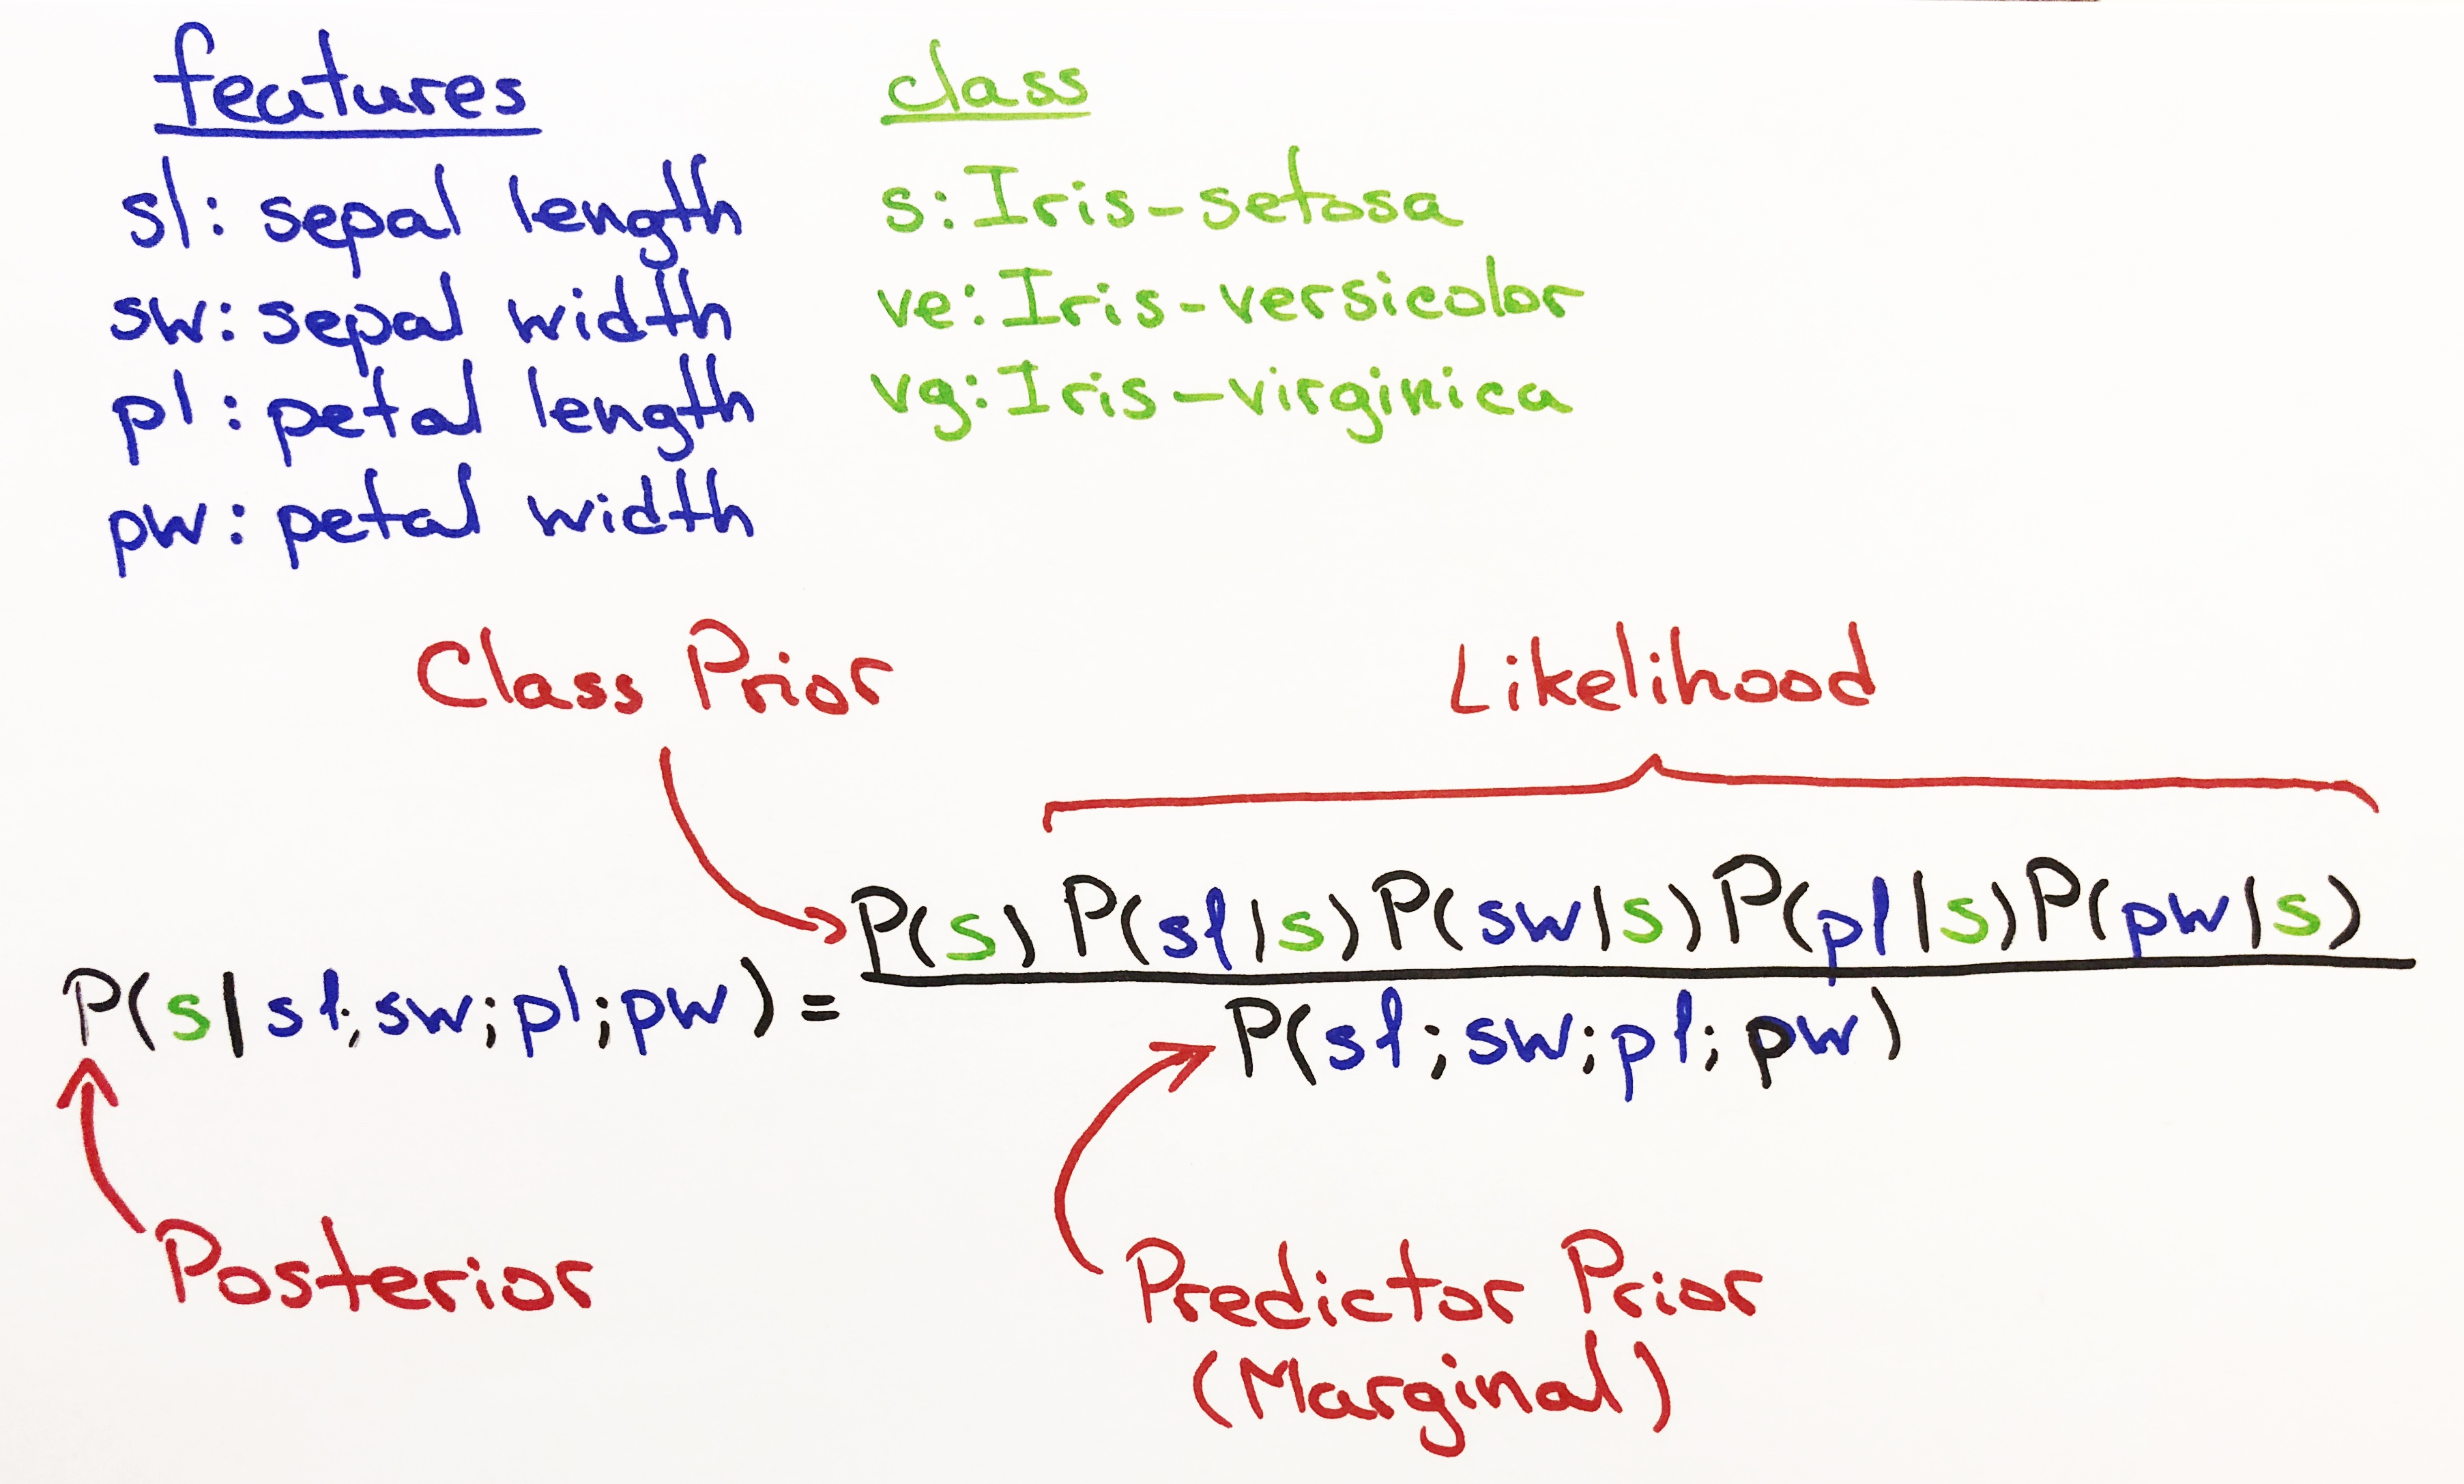 features
sl: sepal length
sw: sepal width
pl: petal length
pw: petal width
class
s: Iris-setosa
ve: Iris-versicolor
vg: Iris-virginica
Class Prior
Likelihood
P(s) P(sl|s) P(sw|s) P(pl|s) P(pw|s)
P(s|sl;sw;pl;pw) =
P(sl;sw;pl;pw)
Posterior
Predictor Prior
(Marginal)